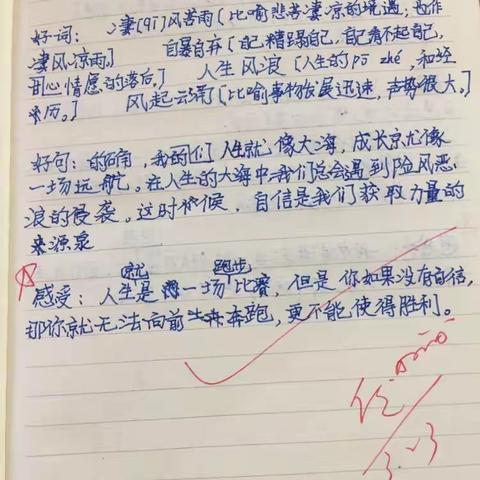 好词： 凄[qī]风苦雨（比喻悲苦凄凉的境遇；也作
凄风凉雨。] 自暴自弃[自己糟蹋自己，自己看不起自己，
甘心情愿的落后。] 人生风浪[人生的pō zhé，和经
来历。] 风起云涌[比喻事物发展迅速，声势很大。]
好句：的确，我们人生就像大海，成长京尤像
一场远航。在人生的大海中我们总会遇到险风恶
浪的侵袭。这时候，自信是我们获取力量的
来源泉
就 跑步
感受：人生是一场比赛，但是你如果没有自信，
那你就无法向前奔跑，更不能使得胜利。
优
3.13